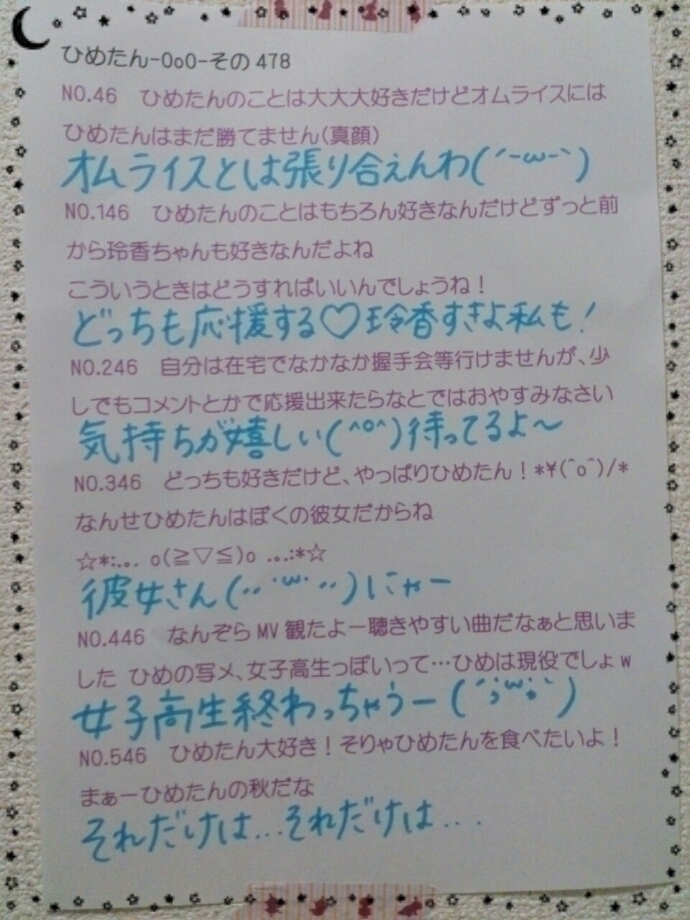 ひめたん-OoO-その478
NO.46　ひめたんのことは大大大好きだけどオムライスには
ひめたんはまだ勝てません(真顔)
オムライスとは張り合えんわ(´-ω-`)
NO.146　ひめたんのことはもちろん好きなんだけどずっと前
から玲香ちゃんも好きなんだよね
こういうときはどうすればいいんでしょうね！
どっちも応援する♡玲香すきよ私も！
NO.246　自分は在宅でなかなか握手会等行けませんが、少
しでもコメントとかで応援出来たらなとではおやすみなさい
気持ちが嬉しい(^o^)待ってるよ〜
NO.346　どっちも好きだけど、やっぱりひめたん！*¥(^o^)/*
なんせひめたんはぼくの彼女だからね
☆*:.｡. o(≧▽≦)o .｡.:*☆
彼女さん(··˙ω˙··)にゃー
NO.446　なんぞらMV観たよー聴きやすい曲だなぁと思いま
した ひめの写メ、女子高生っぽいって…ひめは現役でしょw
女子高生終わっちゃうー(´;ω;`)
NO.546　ひめたん大好き！そりゃひめたんを食べたいよ！
まぁーひめたんの秋だな
それだけは...それだけは...